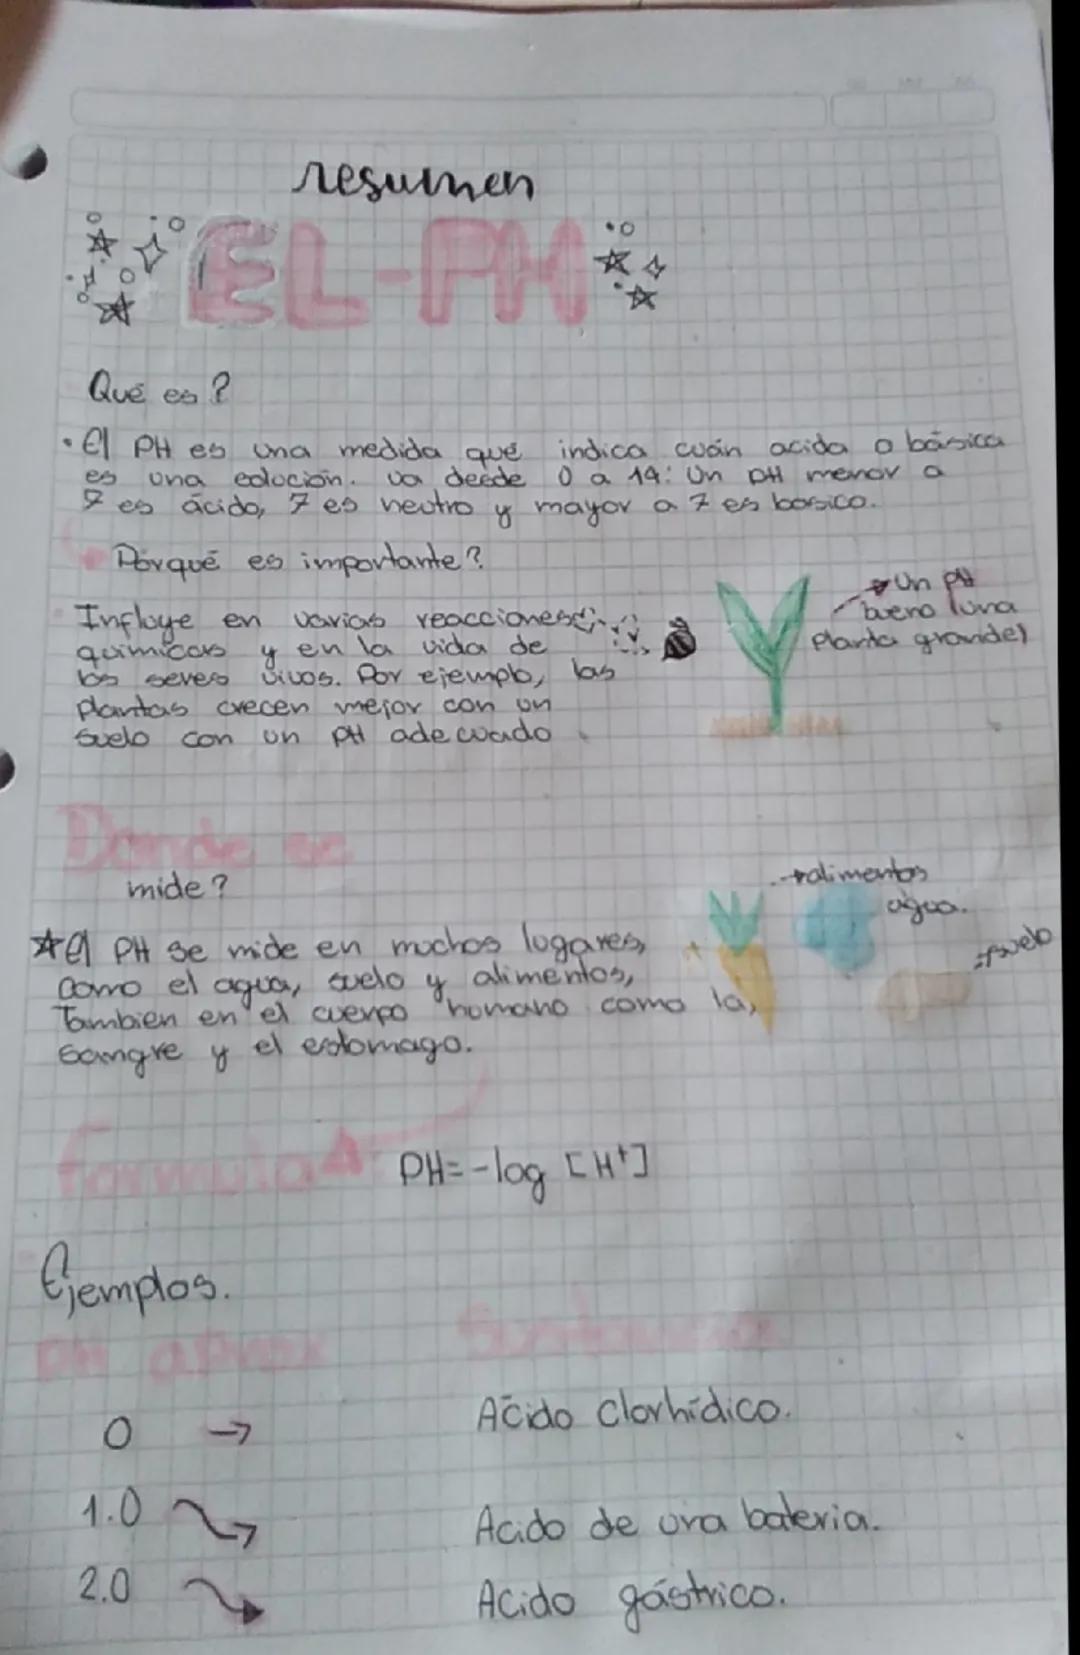 resumen
EL-PH
Qué es?
• El PH es una medida qué indica cuán acida o básica
es una solución. va desde 0 a 14: Un PH menor a
7 es ácido, 7 es neutro y mayor a 7 es basico.
Porqué es importante?
Influye en varias reacciones
quimicas y en la vida de
los seres vivos. Por ejemplo, las
plantas crecen mejor con un
suelo con un PH adecuado
Un PH
bueno (una
planta grande)
Donde se
mide?
El PH se mide en muchos lugares,
como el agua, suelo y alimentos,
Tambien en el cuerpo humano como la,
sangre y el estomago.
alimentos
agua.
suelo
formula
PH=-log [H⁺]
Ejemplos.
PH aprox
0 → Ácido Clorhídico.
1.0 → Acido de una bateria.
2.0 → Acido gástrico.